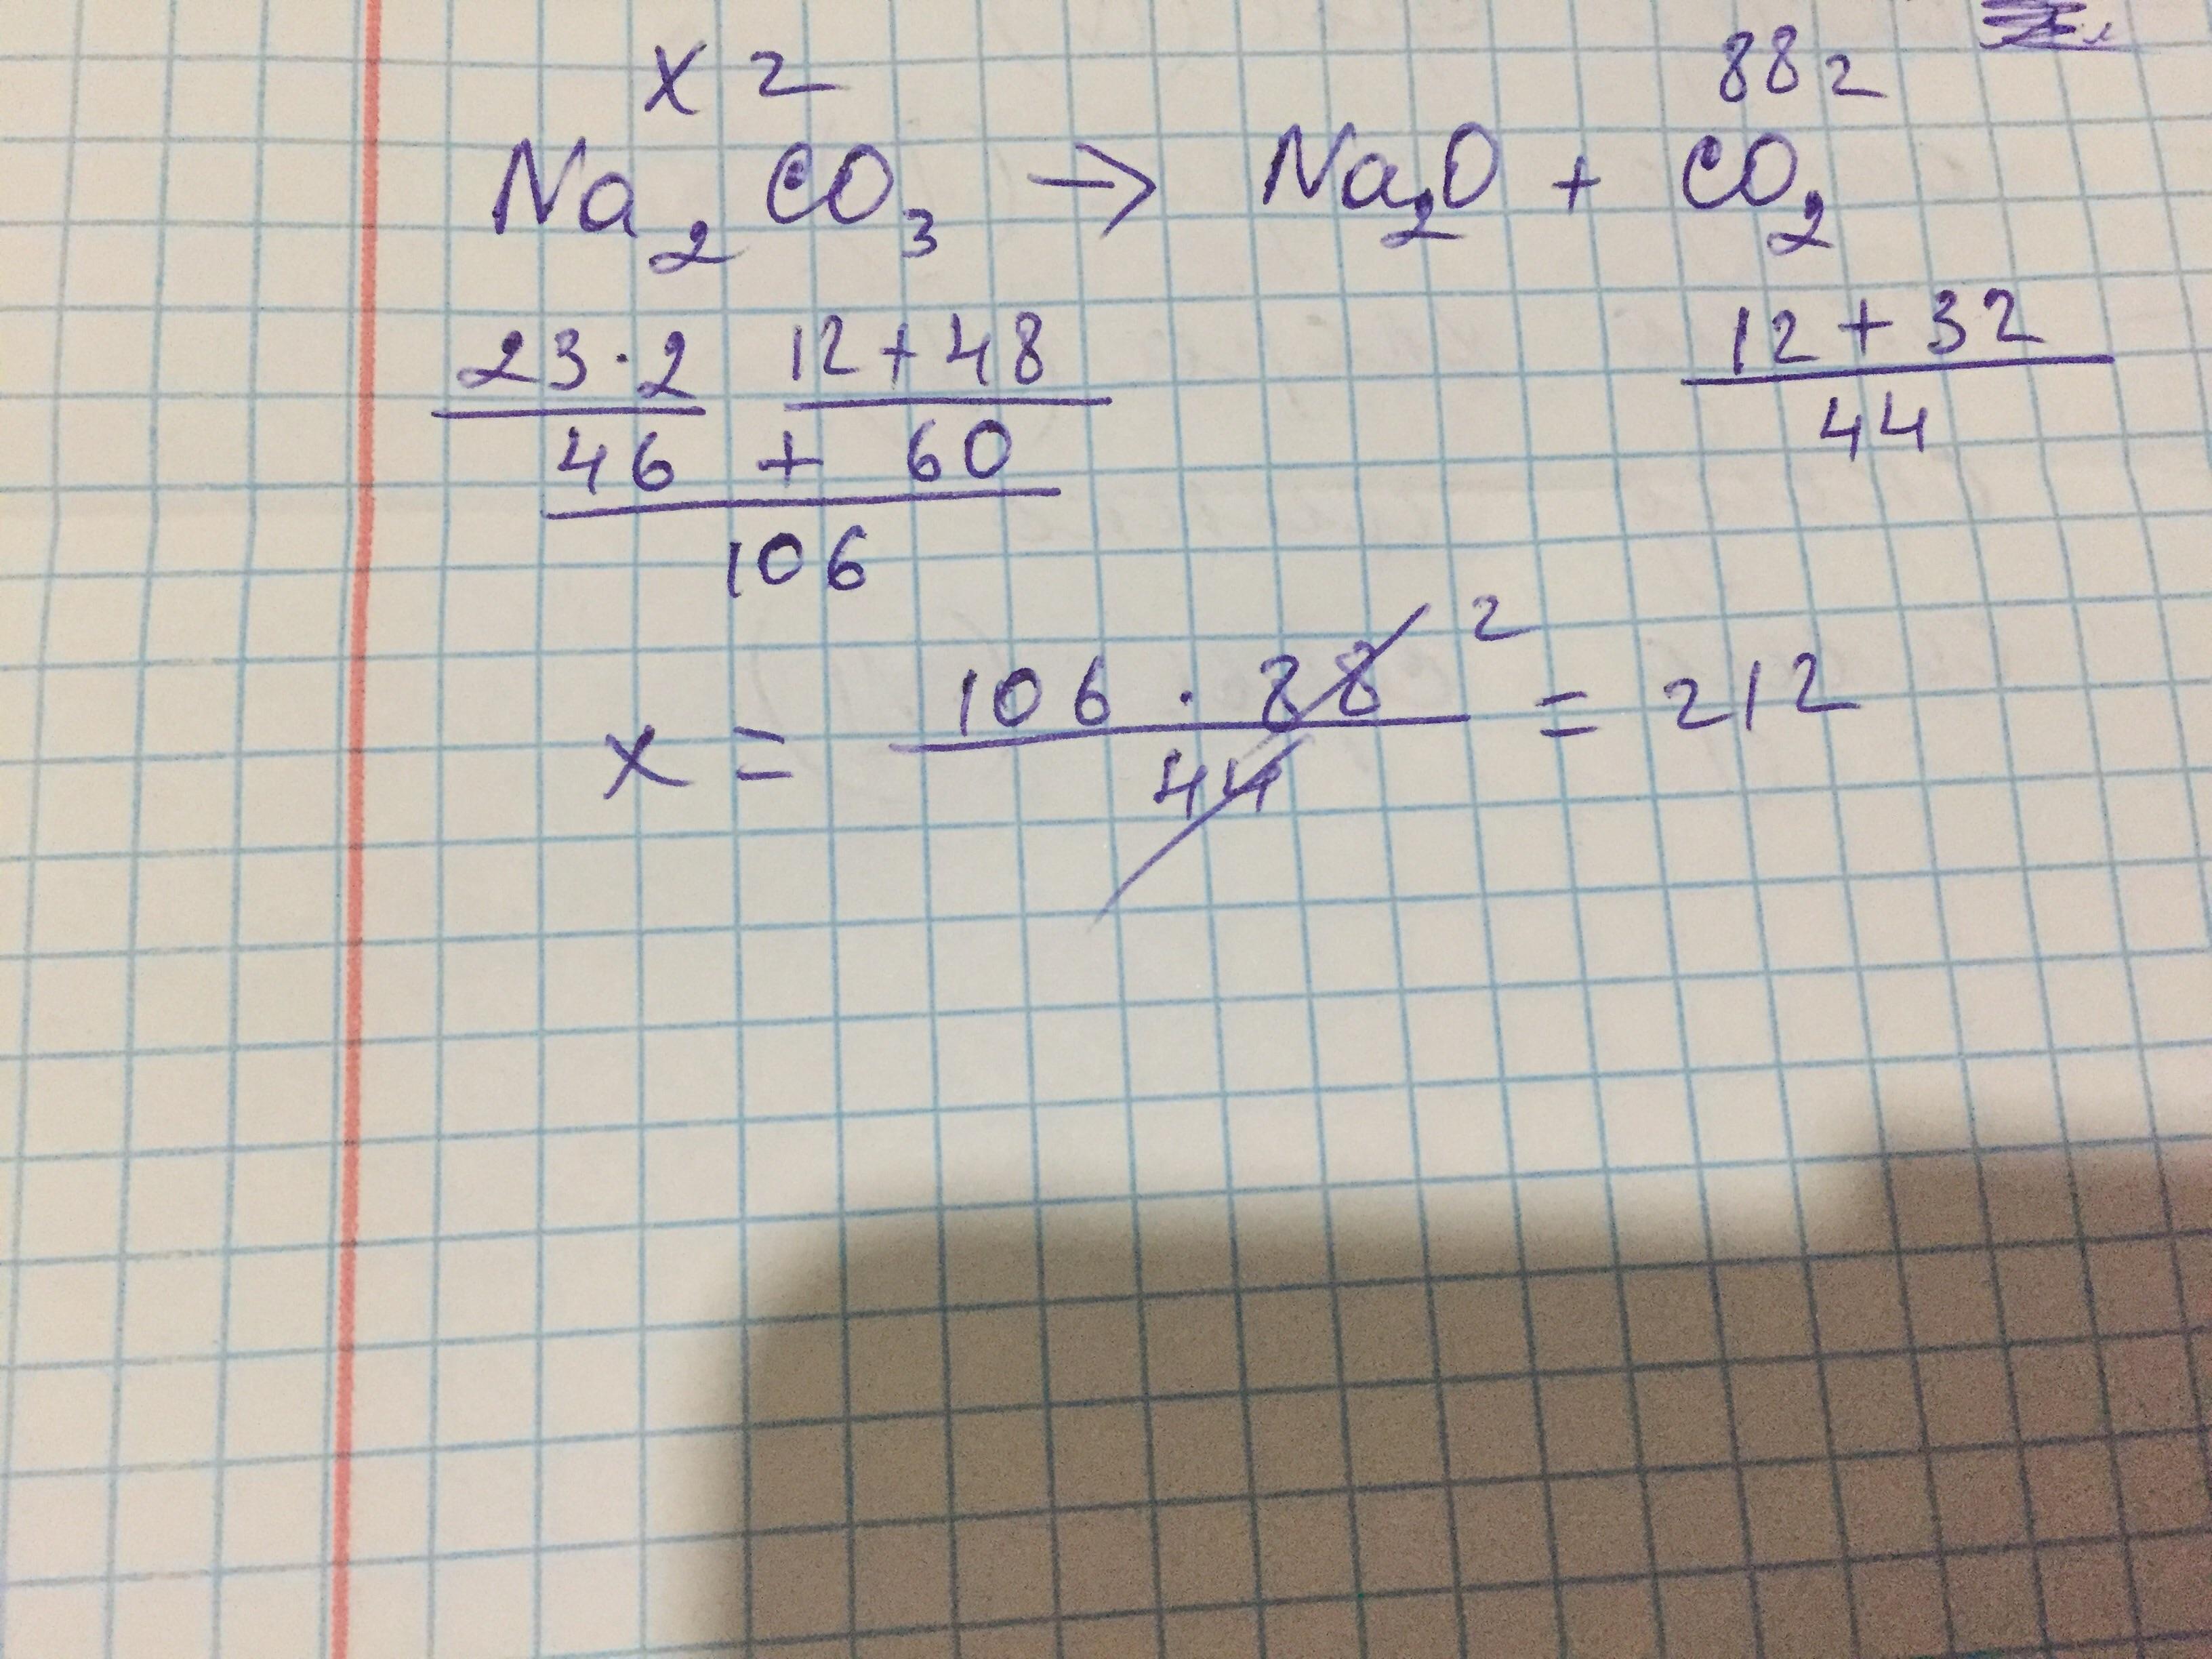 x г 88 г
Na₂CO₃ → Na₂O + CO₂
23·2 12+48 12+32
46 + 60 44
106
x = 106 · 88 / 44 2 = 212